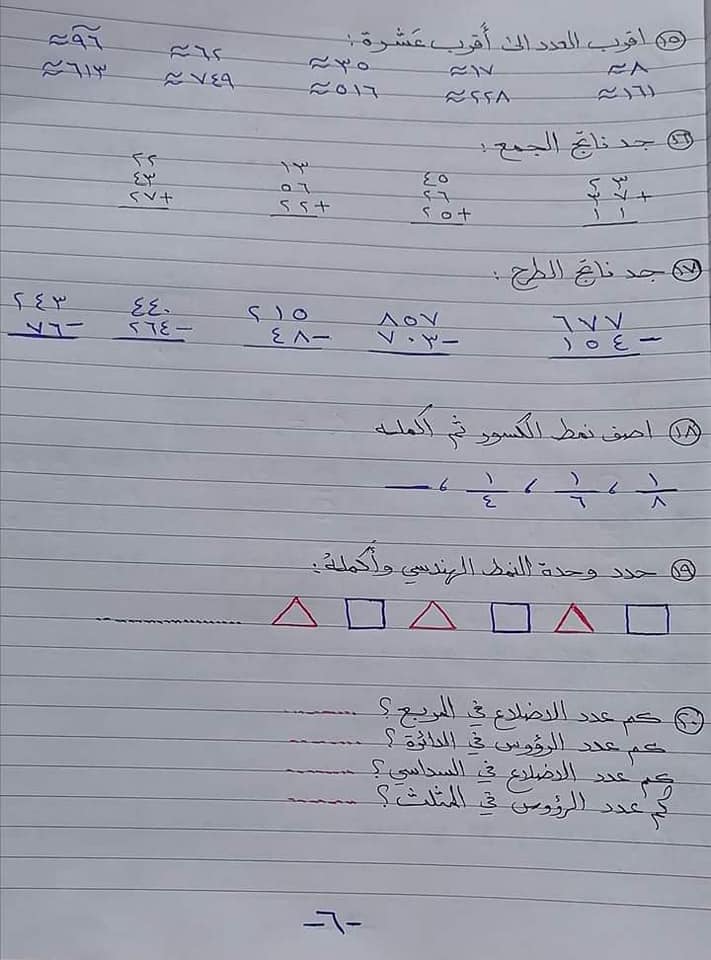 ١٥ اقرب العدد الى أقرب عَشرة :
٨≈ ١٧≈ ٣٥≈ ٦٢≈ ٩٦≈
١٦١≈ ٢٢٨≈ ٥١٦≈ ٧٤٩≈ ٦١٣≈
١٦ جد ناتج الجمع :
٢٣ ٤٥ ١٣ ٢٢
٣٧+ ٢٦ ٥٦ ٤٣
١١ ٢٥+ ٢٢+ ٢٧+
١٧ جد ناتج الطرح :
٦٧٧ ٨٥٧ ٢١٥ ٤٤٠ ٢٤٣
١٥٤− ٧٠٣− ٤٨− ٢٦٤− ٧٦−
١٨ اصف نمط الكسور ثم أكمله
١/٨ ، ١/٦ ، ١/٤ ، ــــ
١٩ حدد وحدة النمط الهندسي وأكملهُ :
....................
٢٠ كم عدد الاضلاع في المربع ؟ ..........
كم عدد الرؤوس في الدائرة ؟ ..........
كم عدد الاضلاع في السداسي ؟ ..........
كم عدد الرؤوس في المثلث ؟ ..........
-٦-